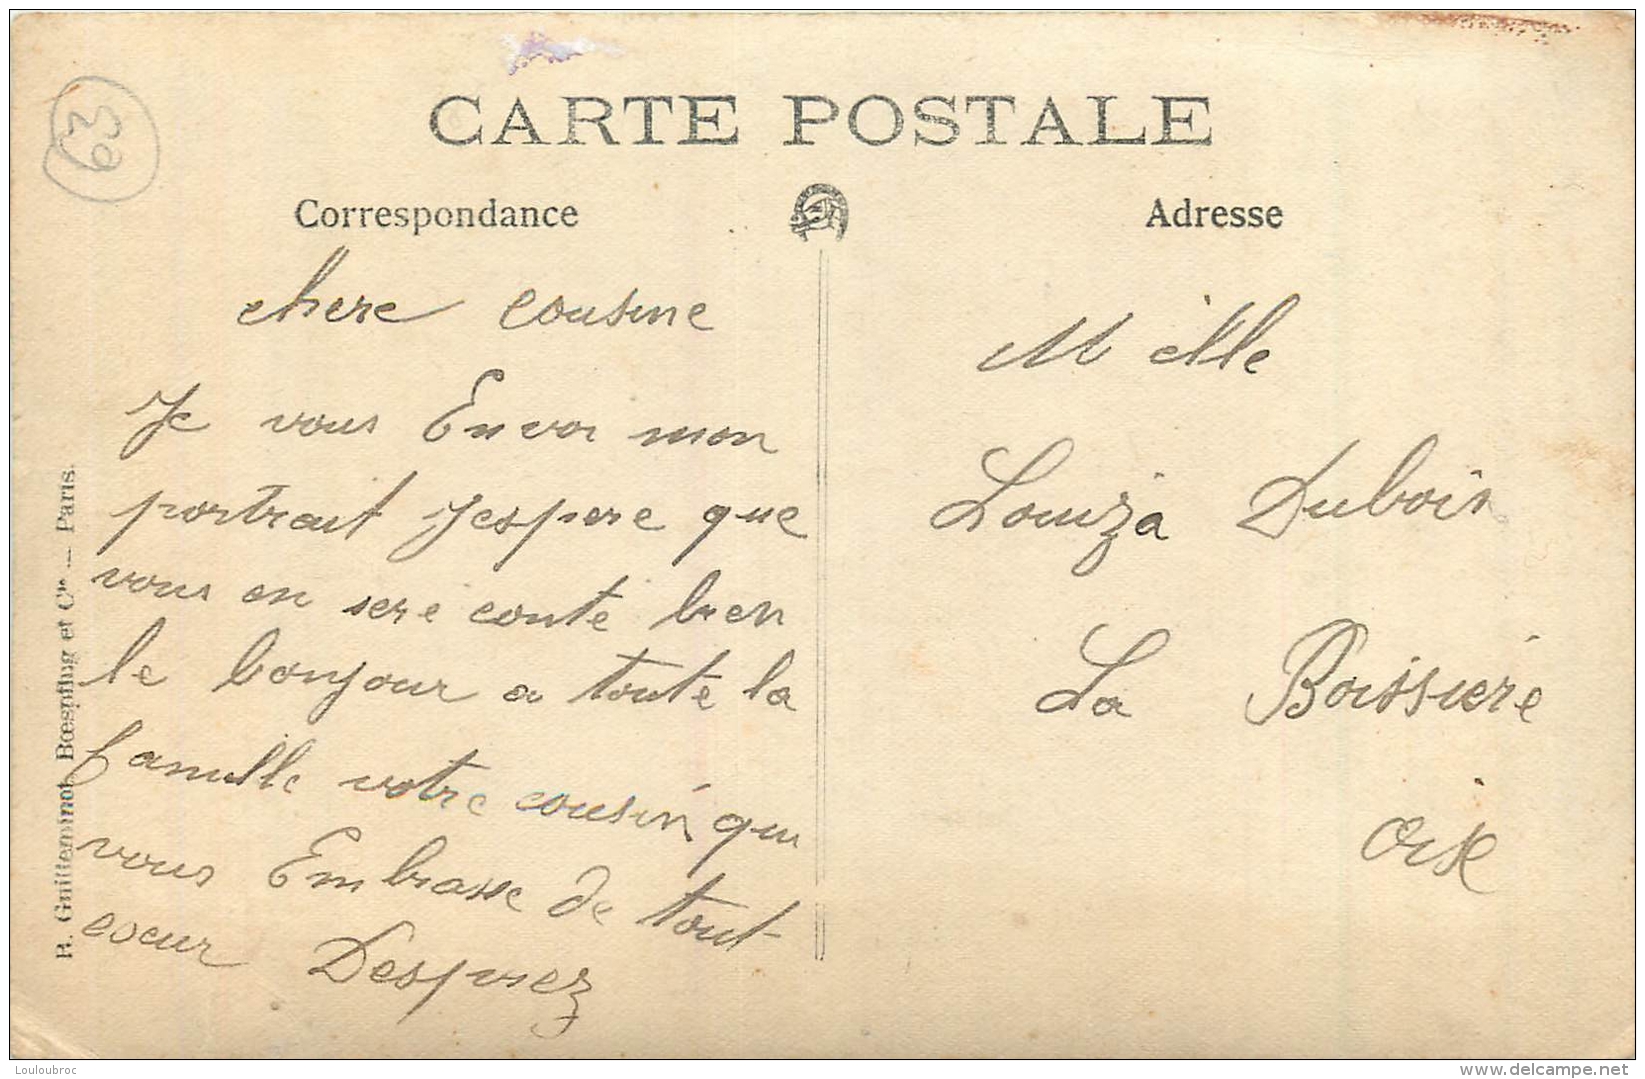 CARTE POSTALE
Correspondance
Adresse
chere cousine
Je vous Envoi mon
portrait Jespere que
vous en sere conte bien
le bonjour a toute la
famille votre cousin qui
vous Embrasse de tout
coeur Desprez
M elle
Louiza Dubois
La Boissiere
Oise
R. Guilleminot, Bœspflug et Cie — Paris.
Louloubroc
www.delcampe.net